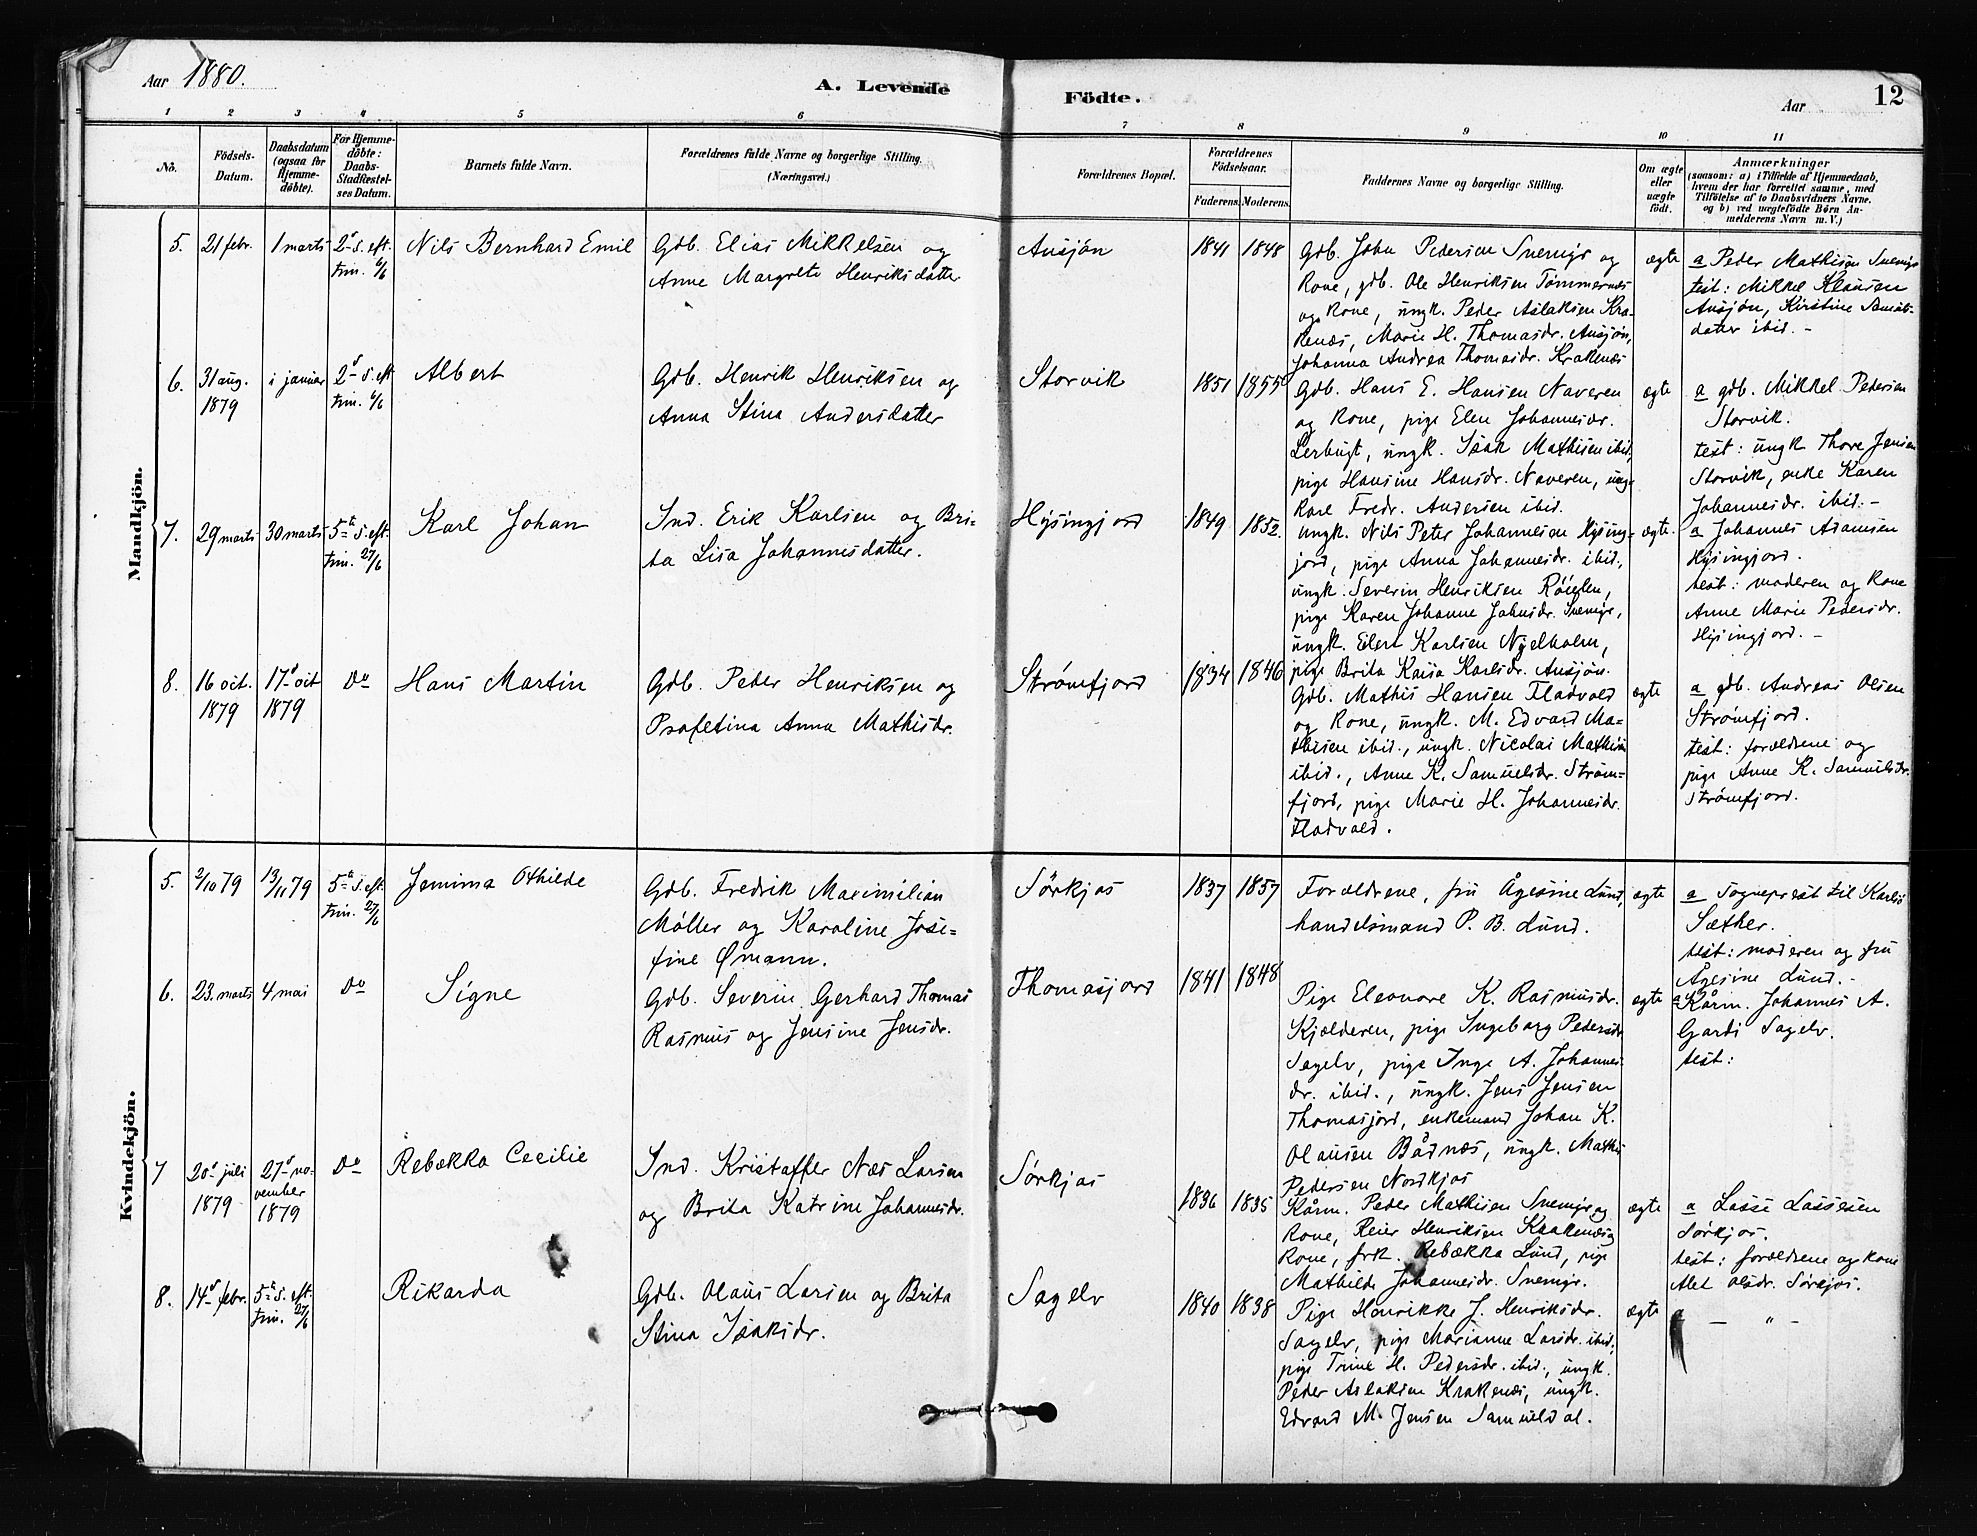 Aar 1880.
A. Levende
Födte.
Aar
12
1 2 3 4 5 6 7 8 9 10 11
No.
Födsels-
Datum.
Daabsdatum
(ogsaa for
Hjemme-
döbte).
For Hjemme-
döbte:
Daabs-
Stadfæstel-
ses Datum.
Barnets fulde Navn.
Forældrenes fulde Navne og borgerlige Stilling.
(Næringsvei.)
Forældrenes Bopæl.
Forældrenes
Födselsaar.
Faderens. Moderens.
Faddernes Navne og borgerlige Stilling.
Om ægte
eller
uægte
födt.
Anmærkninger
(saasom: a) i Tilfælde af Hjemmedaab,
hvem der har forrettet samme, med
Tilföielse af to Daabsvidners Navne.
og b) ved uægtefödte Börn An-
melderens Navn m. V.)
Mandkjön.
5.
21 febr.
1 marts
2d s. eft.
trin. 6/6
Nils Bernhard Emil
Gdb. Elias Mikkelsen og
Anne Margrete Henriksdatter
Ansjøn
1841
1848
Gdb. John Pedersen Svensgr og
Kone, gdb. Ole Henriksen Tømmernæs
og Kone, ungk. Peder Aslaksen Kra-
kenæs, Marie H. Thomasdr. Ansjøn,
Johanna Andrea Thomasdr. Krakenæs
ægte
a Peder Mathisen Svensgr
test: Mikkel Klausen
Ansjøn, Kirstine
datter ibid. -
6.
31 aug.
1879
i januar
2d s. eft
trin. 6/6
Albert
Gdb. Henrik Henriksen og
Anna Stina Andersdatter
Storvik
1851
1855
Gdb. Hans E. Hansen Naveren
og Kone, pige Elen Johannesdr.
Lerbugt, ungk. Isak Mathisen ibid,
pige Hansine Hansdr. Naveren, ung-
Karl Fredr. Andersen ibid.
ægte
a gdb. Mikkel Pedersen
Storvik.
test: ungk Thore Jensen
Storvik, enke Karen
Johannesdr. ibid. -
7.
29 marts
30 marts
5te s. eft.
trin. 27/6
Karl Johan
Ind. Erik Karlsen og Bri-
ta Lisa Johannesdatter.
Hysingjord
1849
1852
Ungk. Nils Peter Johannesen Hysing-
jord, pige Anna Johannesdr. ibid.,
ungk. Severin Henriksen Røielen,
pige Karen Johanne Johnsdr. Svensgr,
ungk. Eilert Karlsen Njelholm,
pige Brita Kaisa Karlsdr. Ansjøn.
ægte.
a Johannes Adamsen
Hysingjord.
test: moderen og Kone
Anne Marie Pedersdr.
Hysingjord. -
8.
16 oct.
1879
17d oct
1879
Do
Hans Martin
Gdb. Peder Henriksen og
Profetina Anna Mathisdr.
Strømfjord
1834
1846
Gdb. Mathis Hansen Fladvold
og Kone, ungk. M. Edvard Ma-
thisen ibid., ungk. Nicolai Mathisen
ibid., Anne K. Samuelsdr. Strøm-
fjord, pige Marie H. Johannesdr.
Fladvold.
ægte
a gdb. Andreas Olsen
Strømfjord.
test: forældrene og
pige Anne K. Samuelsdr.
Strømfjord.
Kvindekjön.
5.
2/10 79
13/11 79
5te s. eft.
trin. 27/6
Jemima Othilde
Gdb. Fredrik Maximilian
Møller og Karoline Jose-
fine Ømann.
Sørkjos
1837
1857
Forældrene, fru Ågesine Lund,
handelsmand P. B. Lund.
ægte
a Sogneprest til Karlsø
Sæther.
test: moderen og fru
Ågesine Lund. -
6.
23. marts
4 mai
Do
Signe
Gdb. Severin Gerhard Thomas
Rasmus og Jensine Jensdr.
Thomasjord
1841
1848
Pige Eleonore K. Rasmusdr.
Kjælderen, pige Ingeborg Pedersdr
Sagelv, pige Inge A. Johannes-
dr. ibid., ungk. Jens Jensen
Thomasjord, enkemand Johan K.
Olausen Bådnæs, ungk. Mathis
Pedersen Nordkjos
ægte
a Kårm. Johannes A.
Gardi Sagelv.
test:
7
20d juli
1879
27d no-
vember
1879
Do
Rebækka Cecilie
Ind. Kristoffer Næs Larsen
og Brita Katrine Johannesdr.
Sørkjos
1836
1835
Kårm. Peder Mathisen Svensgr og
Kone, Reier Henriksen Krakenæs og
Kone, frk. Rebækka Lund, pige
Mathilde Johannesdr. Svensgr.
ægte
a Lasse Lassesen
Sørkjos.
test: forældrene og kone
Alet Olsdr. Sørkjos.
8.
14d febr.
5te s. eft.
trin. 27/6
Rikarda
Gdb. Olaus Larsen og Brita
Stina Isaksdr.
Sagelv
1840
1838
Pige Henrikke J. Henriksdr.
Sagelv, pige Marianne Larsdr. ibid,
pige Trine H. Pedersdr. ibid., ungk.
Peder Aslaksen Krakenæs, ungk.
Edvard M. Jensen Samueldal.
ægte
a - " -